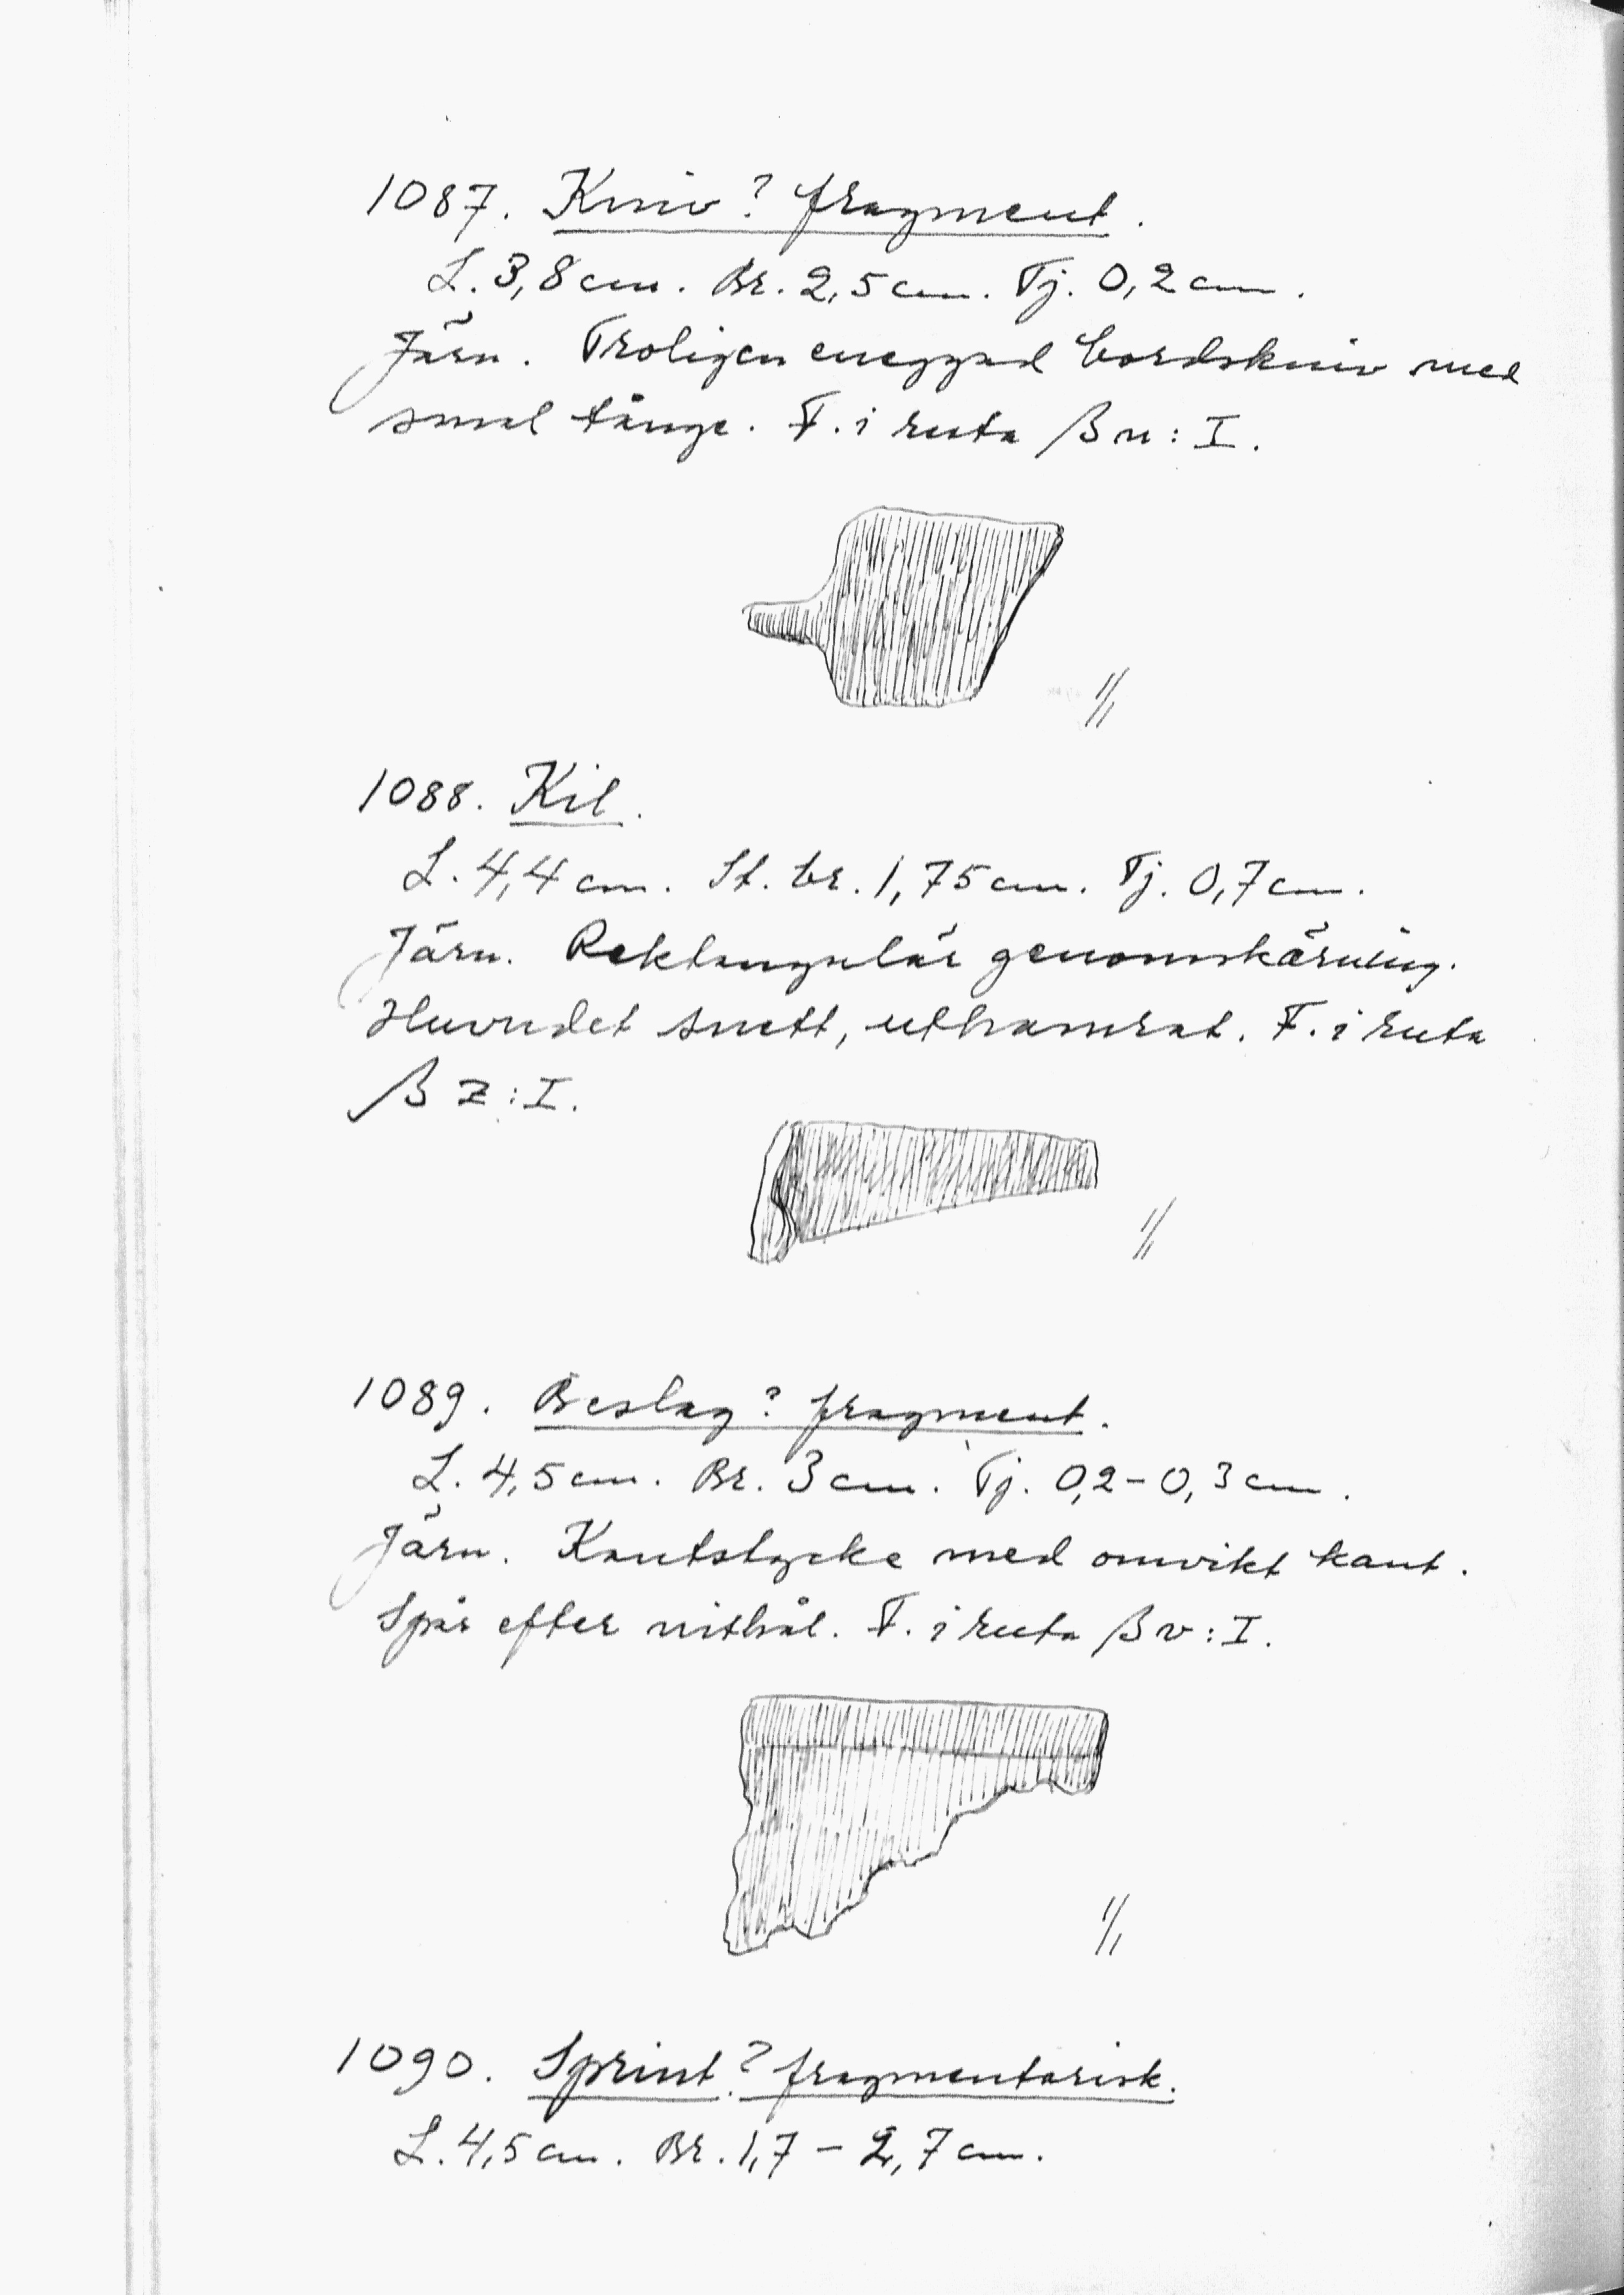 1087. Kniv? fragment.
L. 3,8 cm. Br. 2,5 cm. Tj. 0,2 cm.
Järn. Troligen eneggad bordskniv med
smal tånge. F. i ruta βu:I.
1/1
1088. Kil.
L. 4,4 cm. St. br. 1,75 cm. Tj. 0,7 cm.
Järn. Rektangulär genomskärning.
Huvudet snett, uthamrat. F. i ruta
βz:I.
1/1
1089. Beslag? fragment.
L. 4,5 cm. Br. 3 cm. Tj. 0,2-0,3 cm.
Järn. Kantstycke med omvikt kant.
Spår efter nithål. F. i ruta βv:I.
1/1
1090. Sprint? fragmentarisk.
L. 4,5 cm. Br. 1,7 - 2,7 cm.